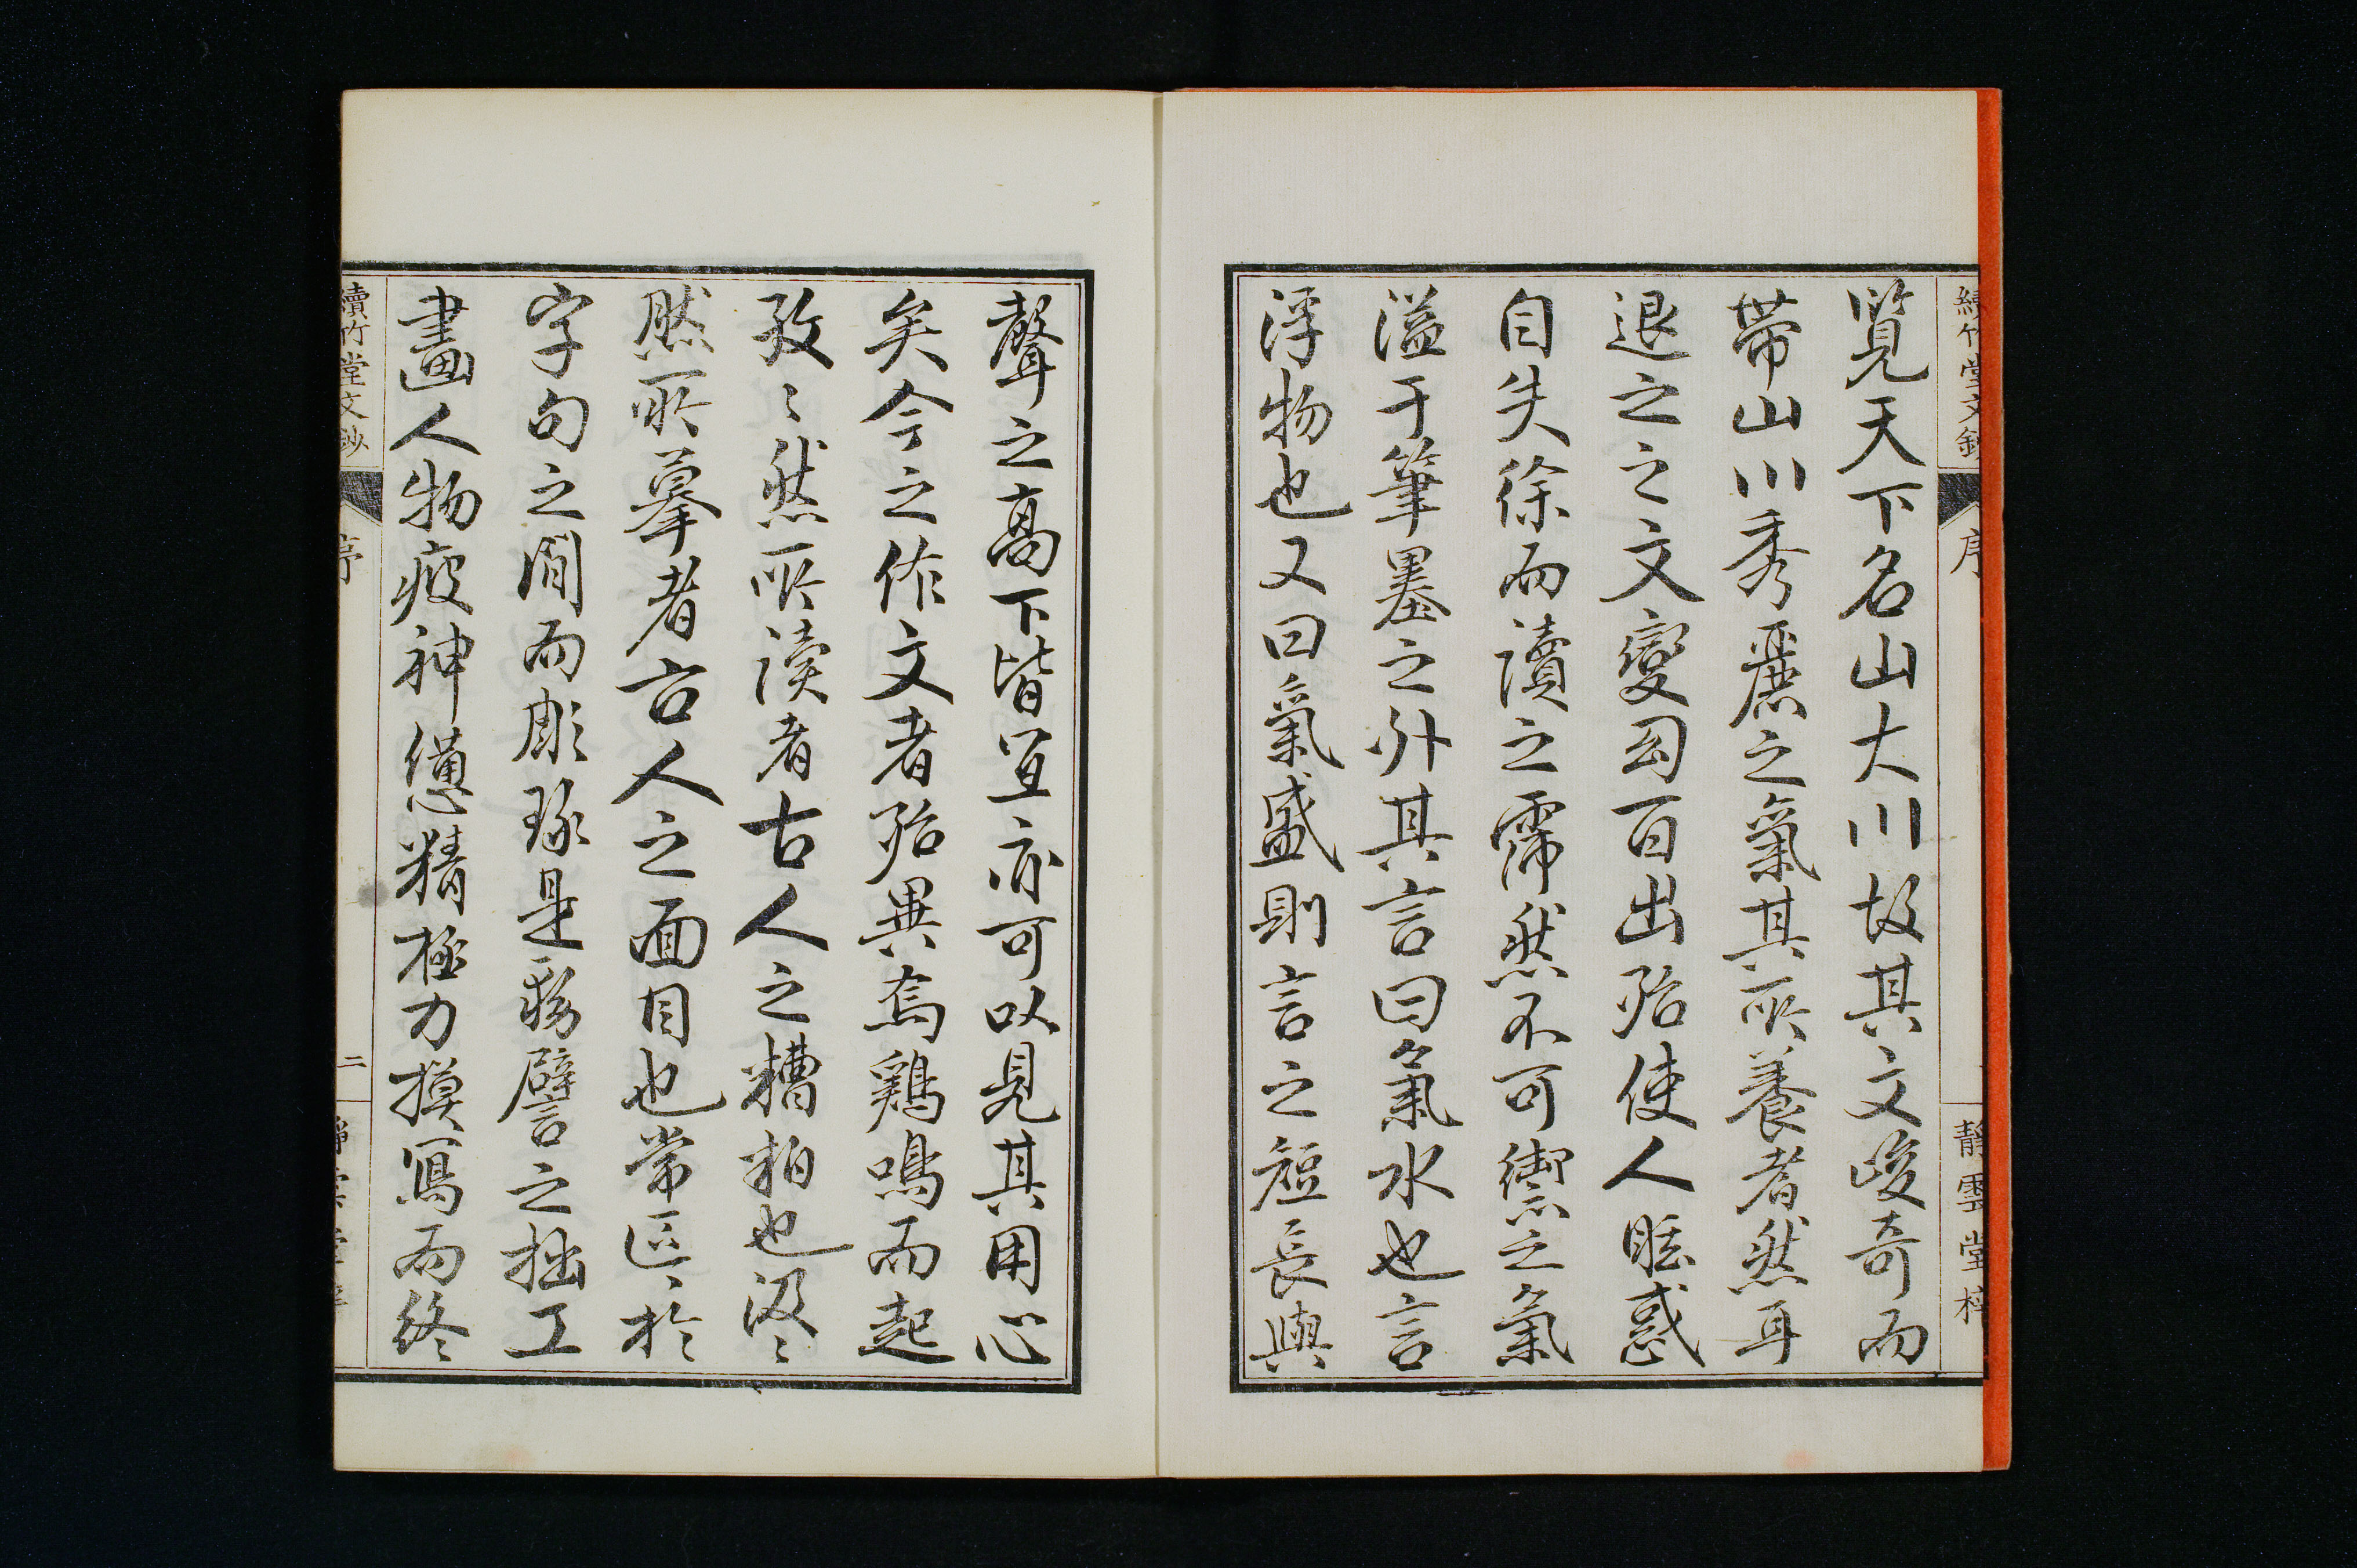 續竹堂文鈔
序
靜雲堂梓
覧天下名山大川故其文峻奇而
帯山川秀麗之氣其所養者然耳
退之之文變幻百出殆使人眩惑
自失徐而讀之霈然不可禦之氣
溢于筆墨之外其言曰氣水也言
浮物也又曰氣盛則言之短長與
聲之高下皆宜亦可以見其用心
矣今之作文者殆異焉鶏鳴而起
孜〻然所読者古人之糟粕也汲〻
然所摹者古人之面目也常區〻於
字句之間而彫琢是務譬之拙工
畫人物疲神憊精極力摸寫而終
續竹堂文鈔
序
二